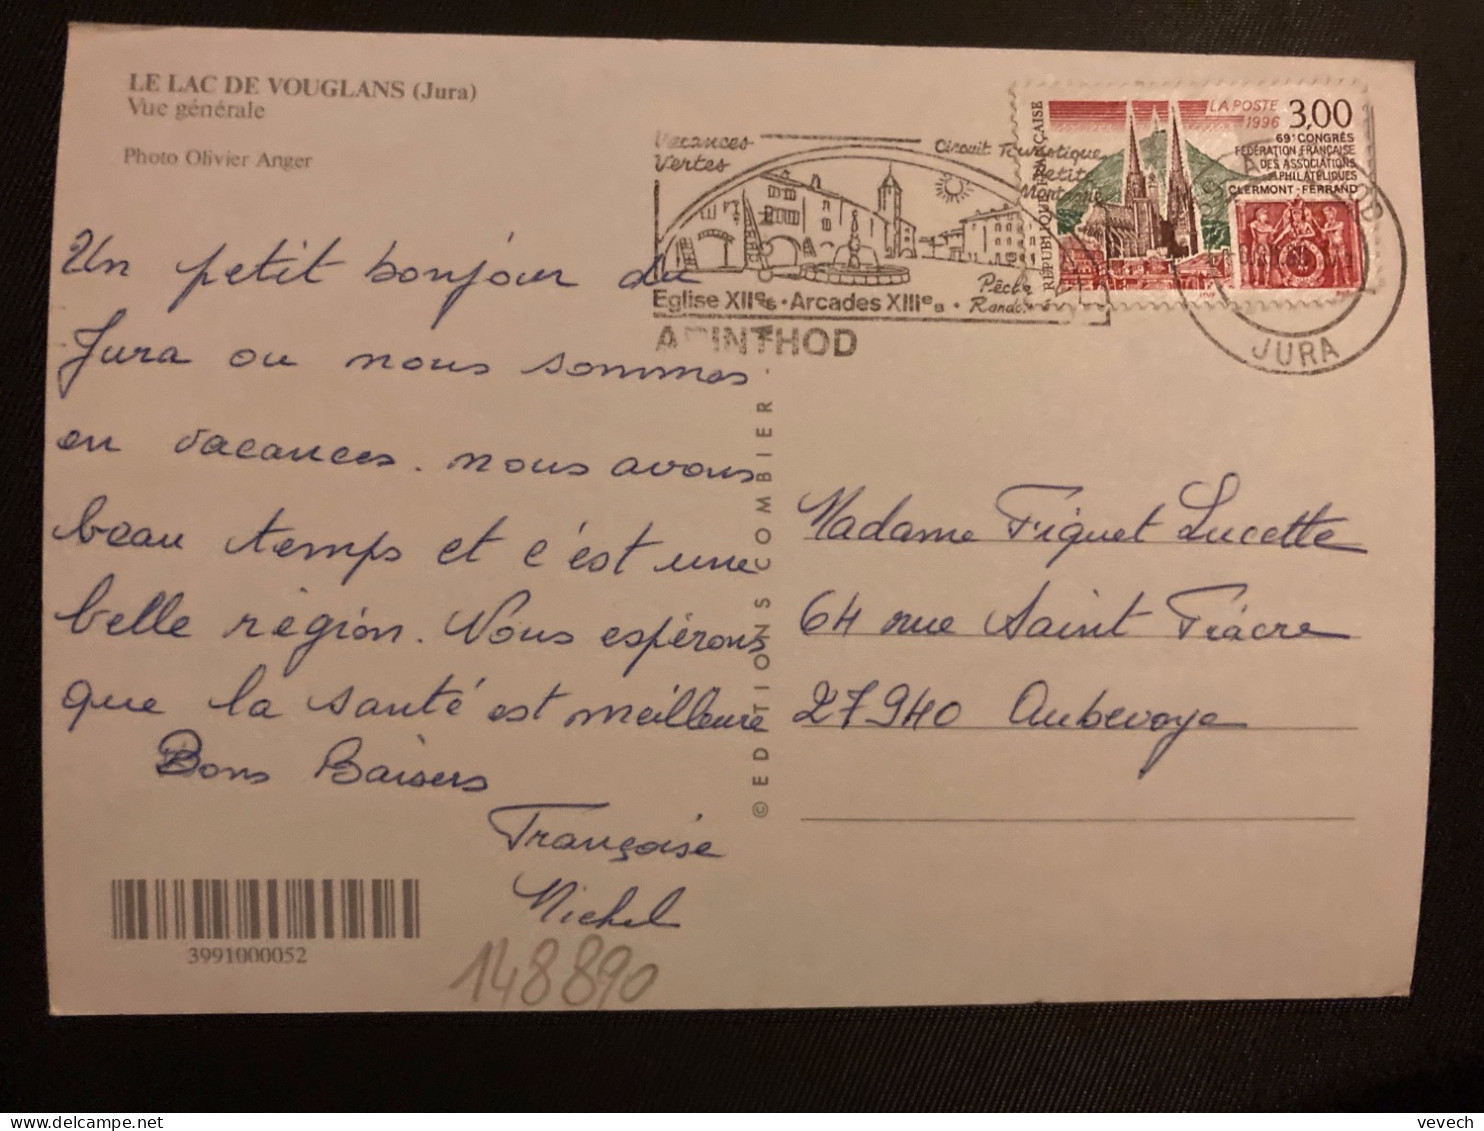 LE LAC DE VOUGLANS (Jura)
Vue générale
Photo Olivier Anger
Un petit bonjour du
Jura ou nous sommes
en vacances. nous avons
beau temps et c'est une
belle région. Nous espérons
que la santé est meilleure
Bons Baisers
Françoise
Michel
3991000052
148890
© EDITIONS COMBIER
Vacances
Vertes
Circuit Touristique
Petite
Montagne
Pêche
Rando
Eglise XIIes · Arcades XIIIes ·
ARINTHOD
RÉPUBLIQUE FRANÇAISE
LA POSTE
1996
3,00
69e CONGRÈS
FÉDÉRATION FRANÇAISE
DES ASSOCIATIONS
PHILATÉLIQUES
CLERMONT-FERRAND
JURA
Madame Fiquet Lucette
64 rue Saint Fiacre
27940 Aubevoye
vevech